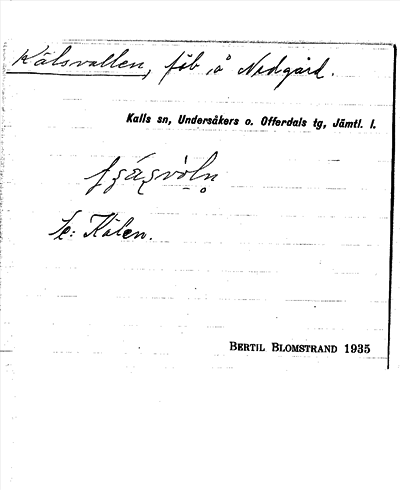 Kälsvallen, fäb å Nedgård.
Kalls sn, Undersåkers o. Offerdals tg, Jämtl. l.
Se: Kälen.
BERTIL BLOMSTRAND 1935